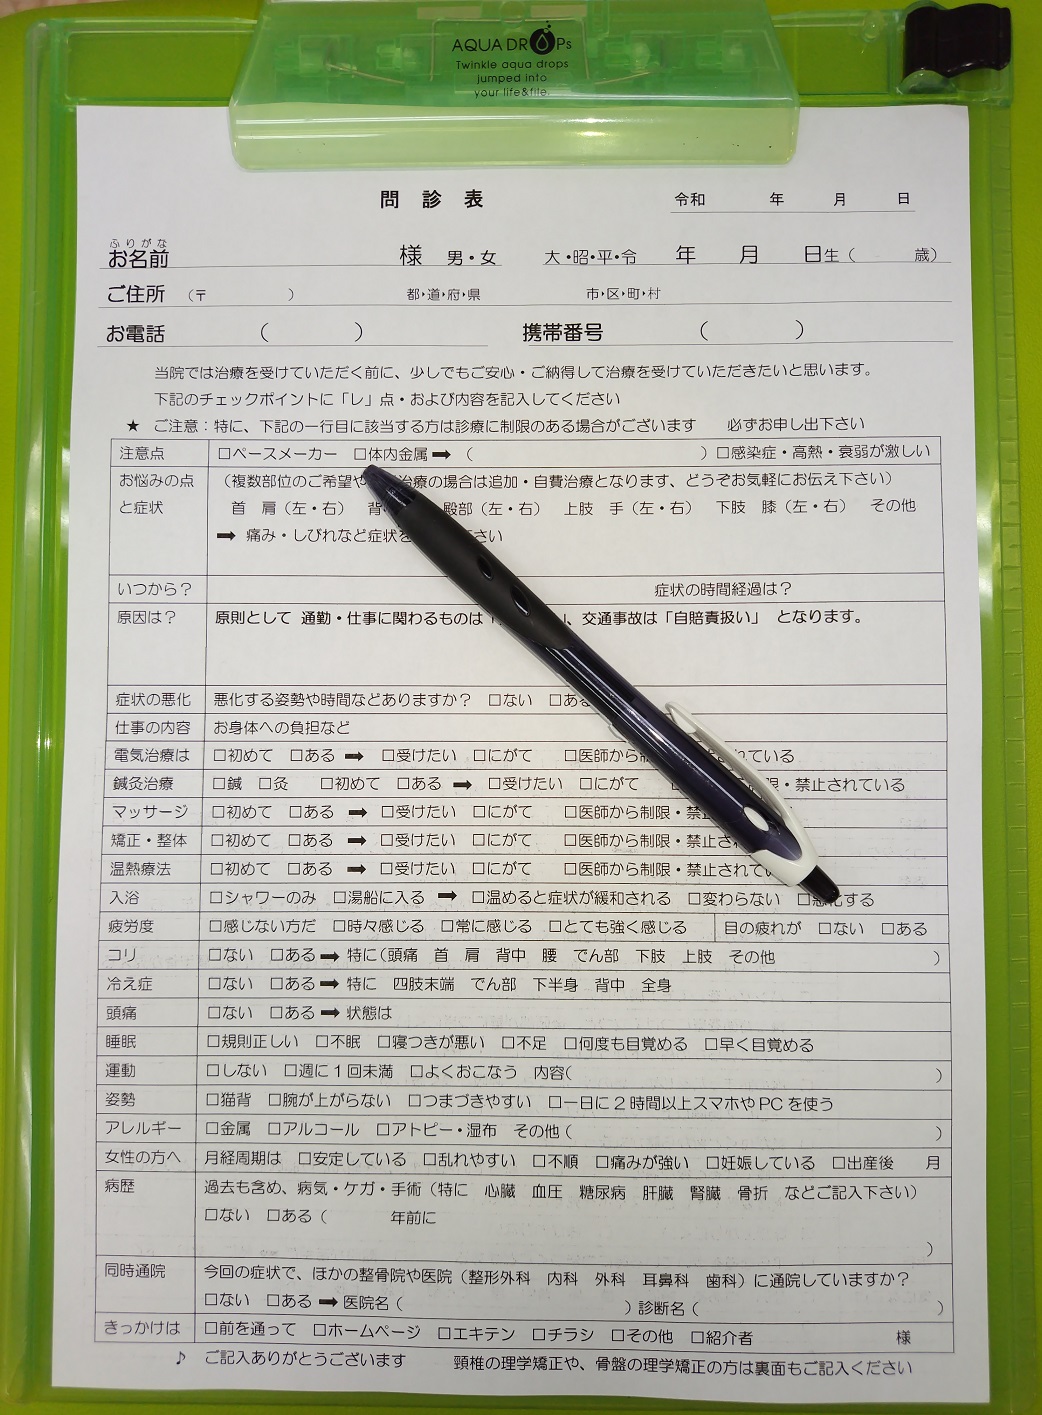 AQUA DROPs
Twinkle aqua drops
jumped into
your life&file.
問 診 表
令和 年 月 日
ふりがな
お名前 様 男・女 大・昭・平・令 年 月 日生（ 歳）
ご住所 （〒 ） 都・道・府・県 市・区・町・村
お電話 （ ） 携帯番号 （ ）
当院では治療を受けていただく前に、少しでもご安心・ご納得して治療を受けていただきたいと思います。
下記のチェックポイントに「レ」点・および内容を記入してください
★ ご注意：特に、下記の一行目に該当する方は診療に制限のある場合がございます 必ずお申し出下さい
注意点 □ペースメーカー □体内金属➡（ ）□感染症・高熱・衰弱が激しい
お悩みの点 （複数部位のご希望や 治療の場合は追加・自費治療となります、どうぞお気軽にお伝え下さい）
と症状 首 肩（左・右） 背 殿部（左・右） 上肢 手（左・右） 下肢 膝（左・右） その他
➡ 痛み・しびれなど症状を さい
いつから？ 症状の時間経過は？
原因は？ 原則として 通勤・仕事に関わるものは 」、交通事故は「自賠責扱い」 となります。
症状の悪化 悪化する姿勢や時間などありますか？ □ない □ある
仕事の内容 お身体への負担など
電気治療は □初めて □ある ➡ □受けたい □にがて □医師から されている
鍼灸治療 □鍼 □灸 □初めて □ある ➡ □受けたい □にがて 限・禁止されている
マッサージ □初めて □ある ➡ □受けたい □にがて □医師から制限・禁止
矯正・整体 □初めて □ある ➡ □受けたい □にがて □医師から制限・禁止され
温熱療法 □初めて □ある ➡ □受けたい □にがて □医師から制限・禁止されてい
入浴 □シャワーのみ □湯船に入る ➡ □温めると症状が緩和される □変わらない □悪化する
疲労度 □感じない方だ □時々感じる □常に感じる □とても強く感じる 目の疲れが □ない □ある
コリ □ない □ある➡ 特に（頭痛 首 肩 背中 腰 でん部 下肢 上肢 その他 ）
冷え症 □ない □ある➡ 特に 四肢末端 でん部 下半身 背中 全身
頭痛 □ない □ある➡ 状態は
睡眠 □規則正しい □不眠 □寝つきが悪い □不足 □何度も目覚める □早く目覚める
運動 □しない □週に１回未満 □よくおこなう 内容（ ）
姿勢 □猫背 □腕が上がらない □つまづきやすい □一日に２時間以上スマホやPCを使う
アレルギー □金属 □アルコール □アトピー・湿布 その他（ ）
女性の方へ 月経周期は □安定している □乱れやすい □不順 □痛みが強い □妊娠している □出産後 月
病歴 過去も含め、病気・ケガ・手術（特に 心臓 血圧 糖尿病 肝臓 腎臓 骨折 などご記入下さい）
□ない □ある（ 年前に
）
同時通院 今回の症状で、ほかの整骨院や医院（整形外科 内科 外科 耳鼻科 歯科）に通院していますか？
□ない □ある➡ 医院名（ ）診断名（ ）
きっかけは □前を通って □ホームページ □エキテン □チラシ □その他 □紹介者 様
♪ ご記入ありがとうございます 頸椎の理学矯正や、骨盤の理学矯正の方は裏面もご記入ください